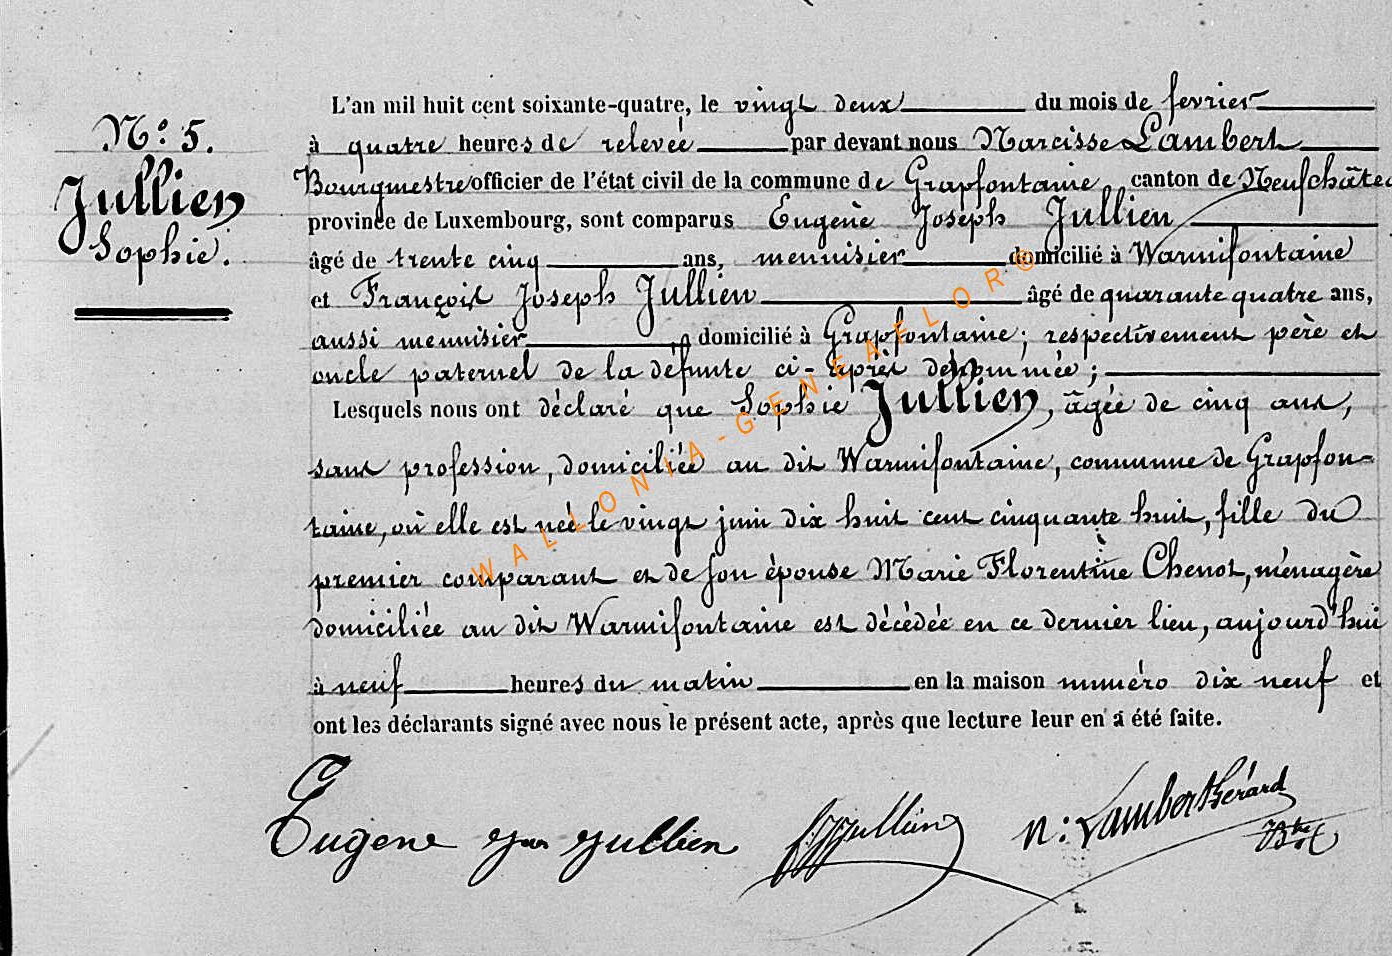 N.º 5.
Jullien
Sophie.
L'an mil huit cent soixante-quatre, le vingt deux du mois de fevrier
à quatre heures de relevée par devant nous Narcisse Lambert
Bourgmestre officier de l'état civil de la commune de Grapfontaine canton de Neufchâteau
province de Luxembourg, sont comparus Eugène Joseph Jullien
âgé de trente cinq ans, menuisier domicilié à Warmifontaine
et François Joseph Jullien âgé de quarante quatre ans,
aussi menuisier, domicilié à Grapfontaine; respectivement père et
oncle paternel de la défunte ci-après dénommée;
Lesquels nous ont déclaré que Sophie Jullien, âgée de cinq ans,
sans profession, domiciliée au dit Warmifontaine, commune de Grapfon-
taine, où elle est née le vingt juin dix huit cent cinquante huit, fille du
premier comparant et de son épouse Marie Florentine Chenot, ménagère
domiciliée au dit Warmifontaine est décédée en ce dernier lieu, aujourd'hui
à neuf heures du matin en la maison numéro dix neuf et
ont les déclarants signé avec nous le présent acte, après que lecture leur en a été faite.
Eugene Jos Jullien FJJullien N: Lambert Gérard
Btre
WALLONIA-GENEAFLOR®